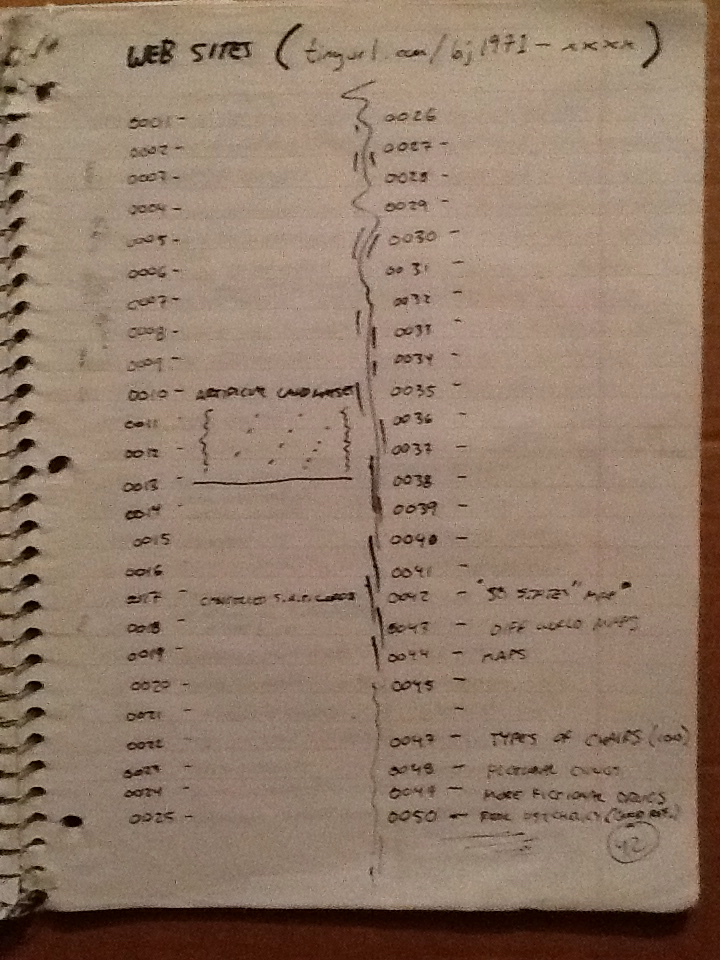 WEB SITES (tinyurl.com/bj1971-xxxx)
0001 -
0002 -
0003 -
0004 -
0005 -
0006 -
0007 -
0008 -
0009 -
0010 - ARTIFICIAL LANGUAGES
0011 -
0012 -
0013 -
0014 -
0015
0016
0017
0018 -
0019 -
0020 -
0021 -
0022 -
0023 -
0024 -
0025 -
0026
0027 -
0028 -
0029 -
0030 -
0031 -
0032 -
0033 -
0034 -
0035 -
0036 -
0037 -
0038 -
0039 -
0040 -
0041 -
0042 - "50 STATES" MAP
0043 - DIFF WORLD MAPS
0044 - MAPS
0045 -
-
0047 - TYPES OF CHAIRS (100)
0048 - FICTIONAL DRUGS
0049 - MORE FICTIONAL DRUGS
0050 -
42